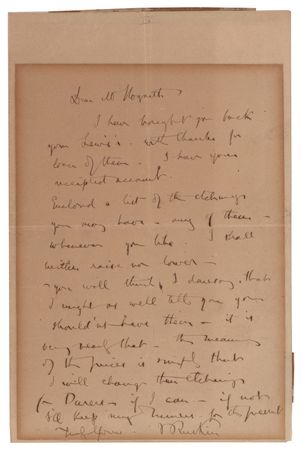 Dear Mr Hogarth
I have brought you back
your Lewis's. with thanks for
loan of them. I have your
receipted account.
Enclosed a list of the etchings
you may have - any of these -
whenever you like. I shall
neither raise nor lower -
- you will think, I daresay, that
I might as well tell you you
should'nt have them - it is
very nearly that - the meaning
of the prices is simply that
I will change the etchings
for Durers if I can - if not
I'll keep my for the present
Truly Yours J Ruskin